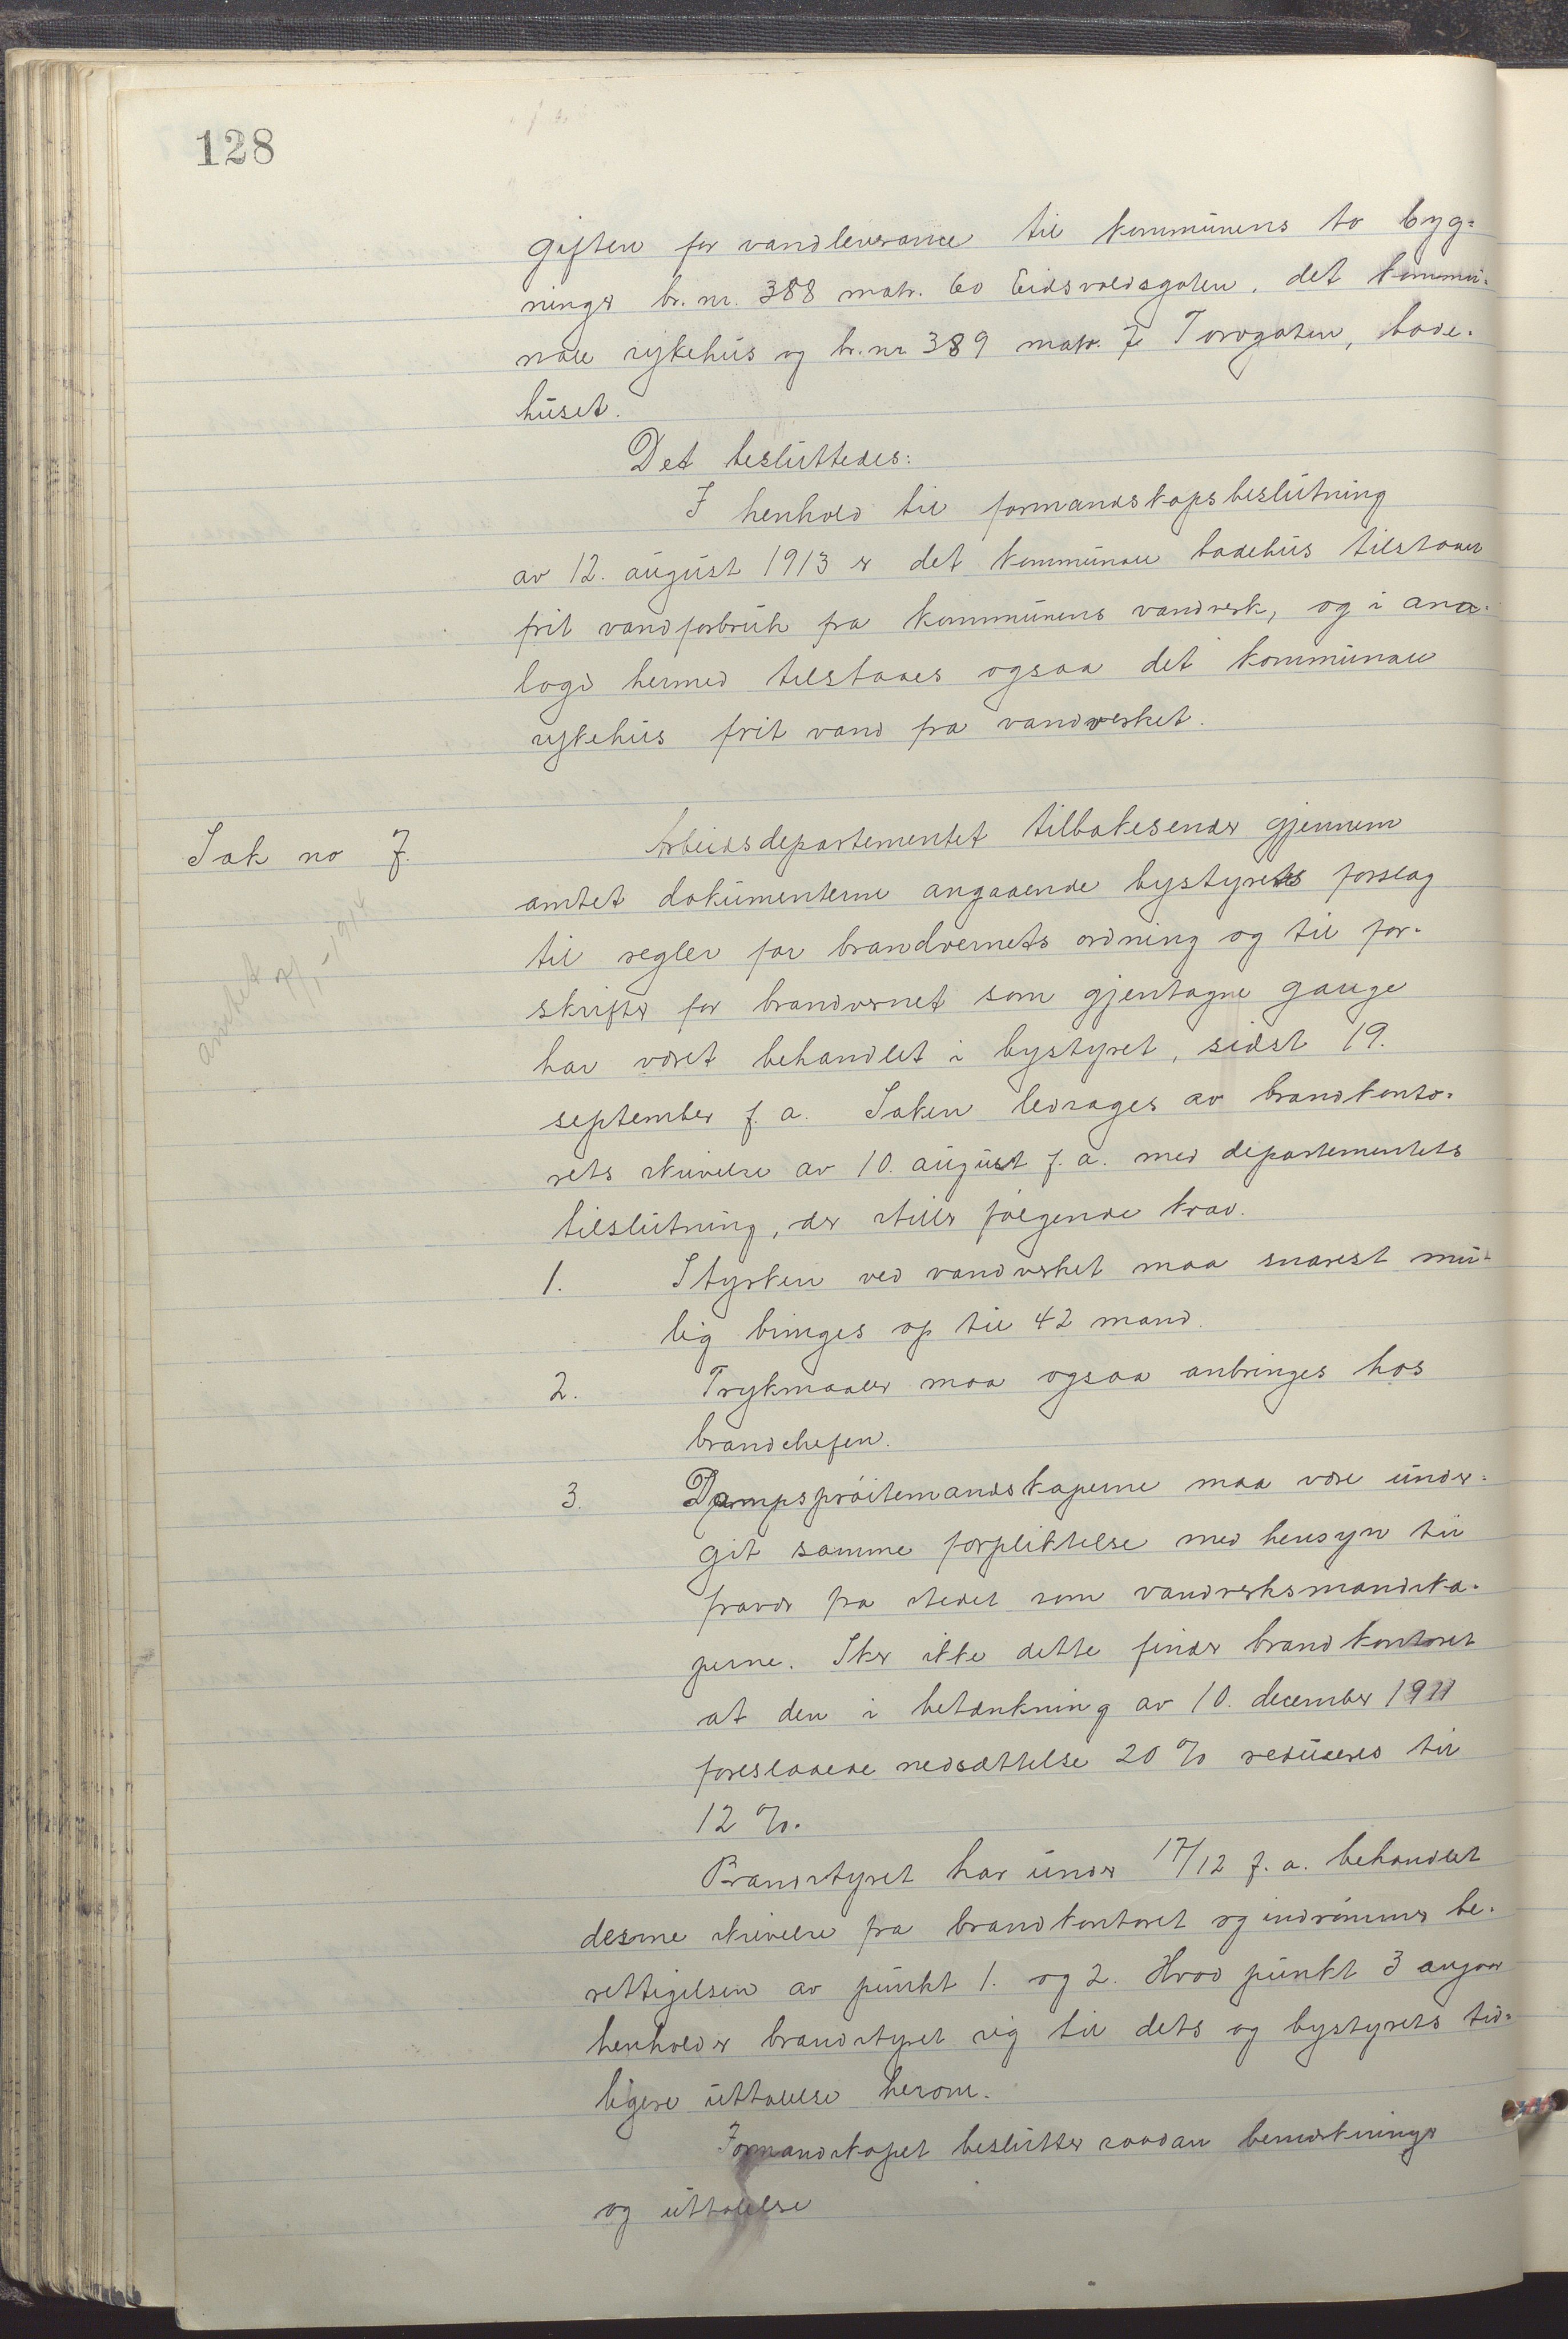 128
giften for vandleverance til kommunens to byg=
ninger br. nr. 388 matr. 60 Eidsvoldsgaten, det kommu-
nale sykehus og br. nr 389 matr. 7 Torvgaten, bade-
huset.
Det besluttedes:
I henhold til formandskapsbeslutning
av 12. august 1913 er det kommunale badehus tilstaaet
frit vandforbruk fra kommunens vandverk, og i ana-
logi hermed tilstaaes ogsaa det kommunale
sykehus frit vand fra vandverket.
Sak no 7.
Arbeidsdepartementet tilbakesender gjennem
amtet dokumenterne angaaende bystyrets forslag
til regler for brandvernets ordning og til for-
skrifter for brandvernet som gjentagne gange
har været behandlet i bystyret, sidst 19.
september f. a. Saken ledsages av brandkonto-
rets skrivelse av 10. august f. a. med departementets
tilslutning, der stiller følgende krav.
1. Styrken ved vandverket maa snarest mu-
lig bringes op til 42 mand.
2. Trykmaaler maa ogsaa anbringes hos
brandchefen.
3. Dampsprøitemandskaperne maa være under-
git samme forpliktelse med hensyn til
fravær fra stedet som vandverksmandska-
perne. Sker ikke dette finder brandkontoret
at den i betænkning av 10. december 1911
foreslaaede nedsættelse 20 % reduceres til
12 %.
Brandstyret har under 17/12 f. a. behandlet
denne skrivelse fra brandkontoret og indrømmer be-
rettigelsen av punkt 1. og 2. Hvad punkt 3 angaar
henholder brandstyret sig til dets og bystyrets tid=
ligere uttalelse herom.
Formandskapet beslutter saadan bemerkninger
og uttalelse